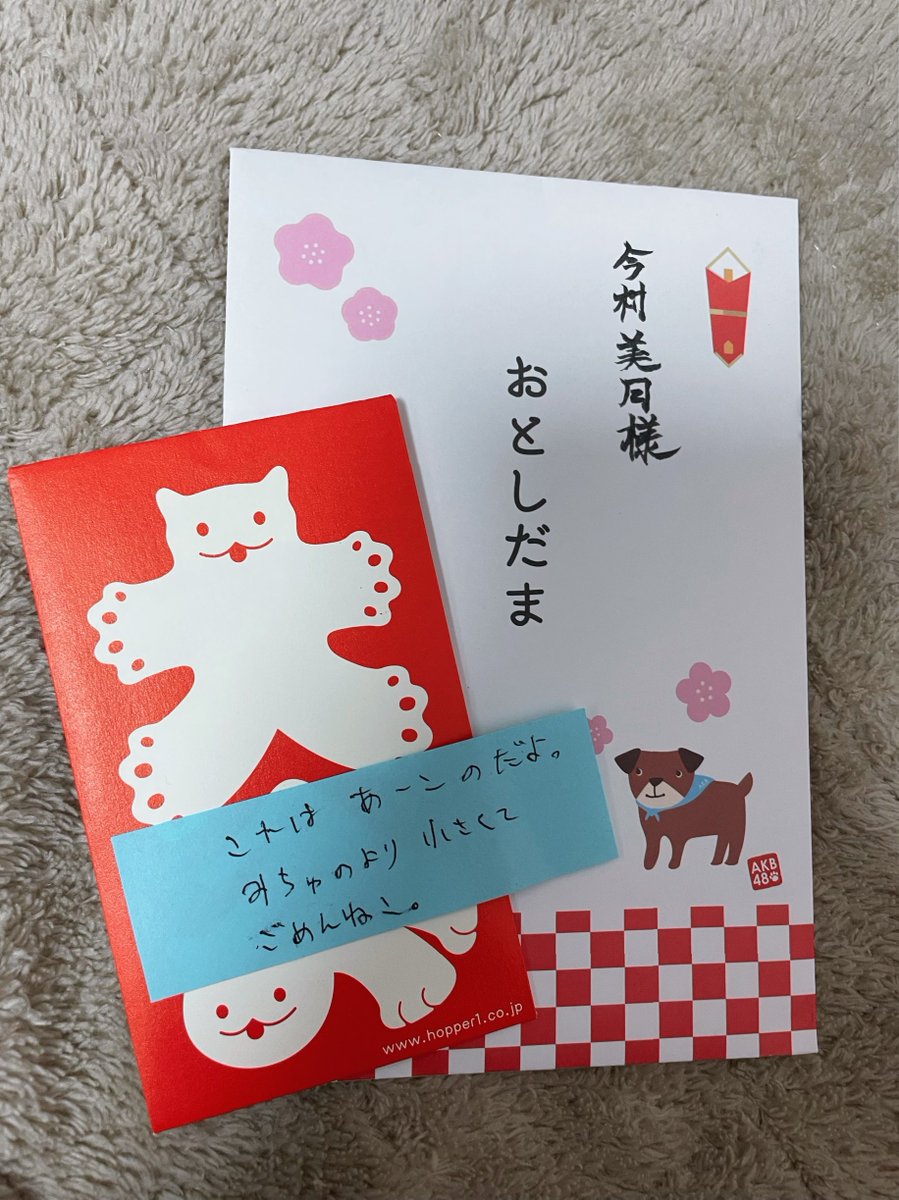 今村美月様
おとしだま
AKB
48
これは あーこのだよ。
みちゅのより 小さくて
ごめんねこ。
www.hopper1.co.jp